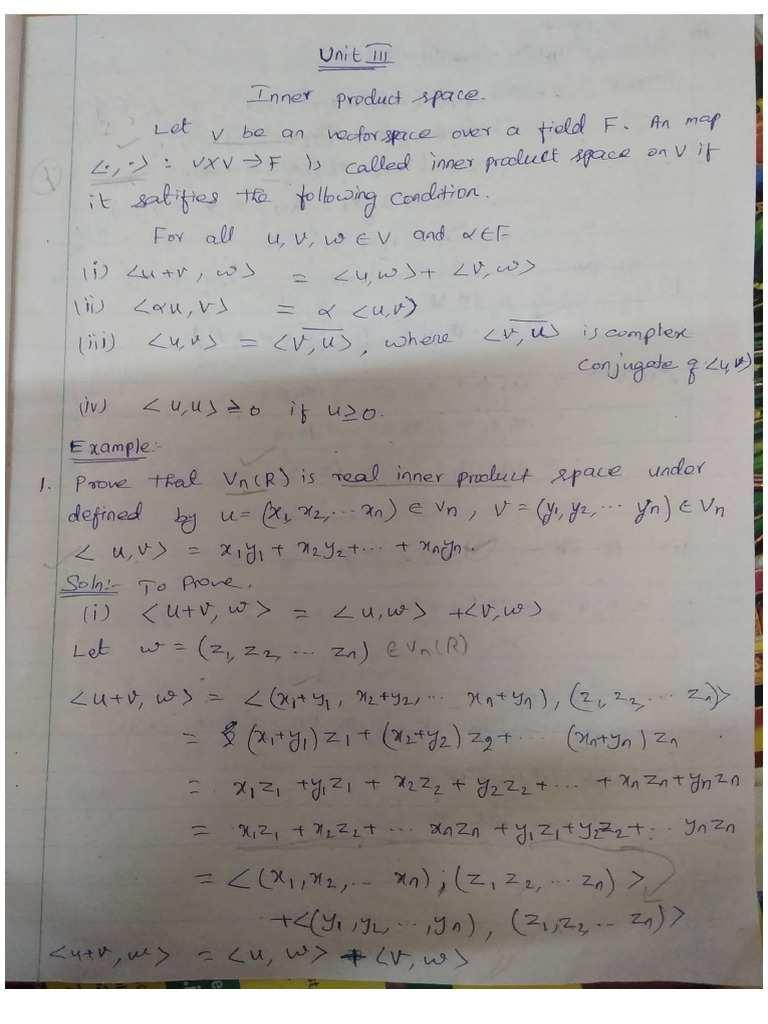 Unit III
Inner product space.
Let V be an vectorspace over a field F. An map
<·,·> : V×V → F is called inner product space on V if
it satifies the following condition.
For all u, v, w ∈ V and α∈F
(i) <u+v, w> = <u,w> + <v,w>
(ii) <αu, v> = α <u,v>
(iii) <u,v> = <\overline{v,u}>, where <\overline{v,u}> is complex
conjugate of <u,v>
(iv) <u,u> ≥ 0 if u≥0.
Example:-
1. Prove that Vn(R) is real inner product space under
defined by u = (x1, x2, ... xn) ∈ Vn, v = (y1, y2, ... yn) ∈ Vn
<u,v> = x1y1 + x2y2 + ... + xnyn.
Soln:- To Prove.
(i) <u+v, w> = <u,w> + <v,w>
Let w = (z1, z2, ... zn) ∈ Vn(R)
<u+v, w> = <(x1+y1, x2+y2, ... xn+yn), (z1, z2, ... zn)>
= (x1+y1)z1 + (x2+y2)z2 + ... (xn+yn)zn
= x1z1 + y1z1 + x2z2 + y2z2 + ... + xnzn + ynzn
= x1z1 + x2z2 + ... xnzn + y1z1 + y2z2 + ... ynzn
= <(x1, x2, ... xn); (z1, z2, ... zn)>
+ <(y1, y2, ..., yn), (z1, z2, ... zn)>
<u+v, w> = <u, w> + <v, w>